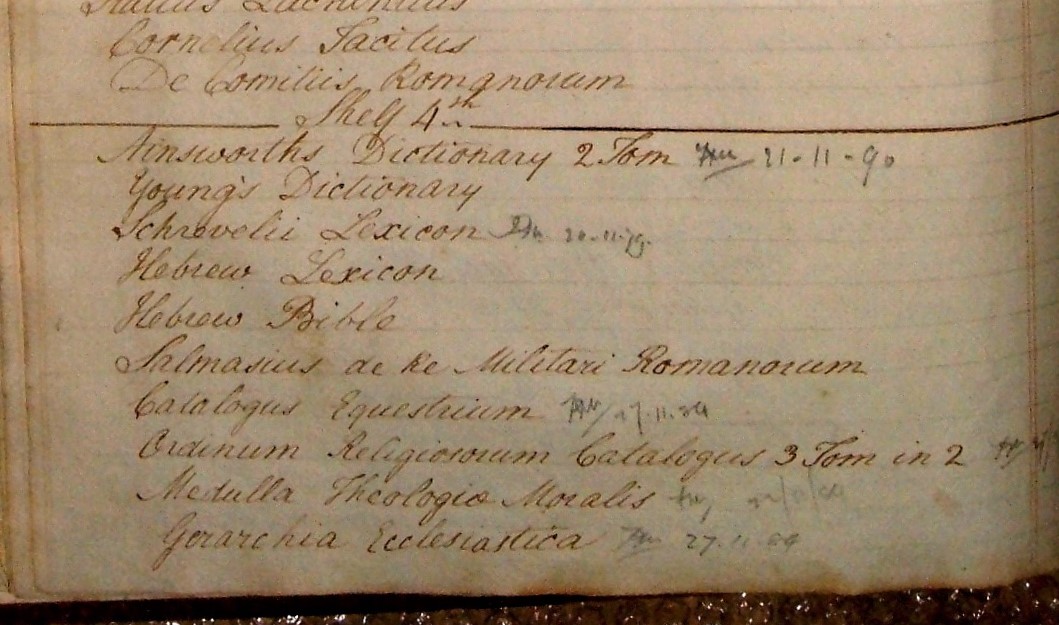 Cornelius Tacitus
De Comitiis Romanorum
Shelf 4th
Ainsworths Dictionary 2 Tom 21-11-90
Young's Dictionary
Schrevelii Lexicon
Hebrew Lexicon
Hebrew Bible
Salmasius de Re Militari Romanorum
Catalogus Equestrium
Ordinum Religiosorum Catalogus 3 Tom in 2
Medulla Theologiæ Moralis
Gerarchia Ecclesiastica 27.11